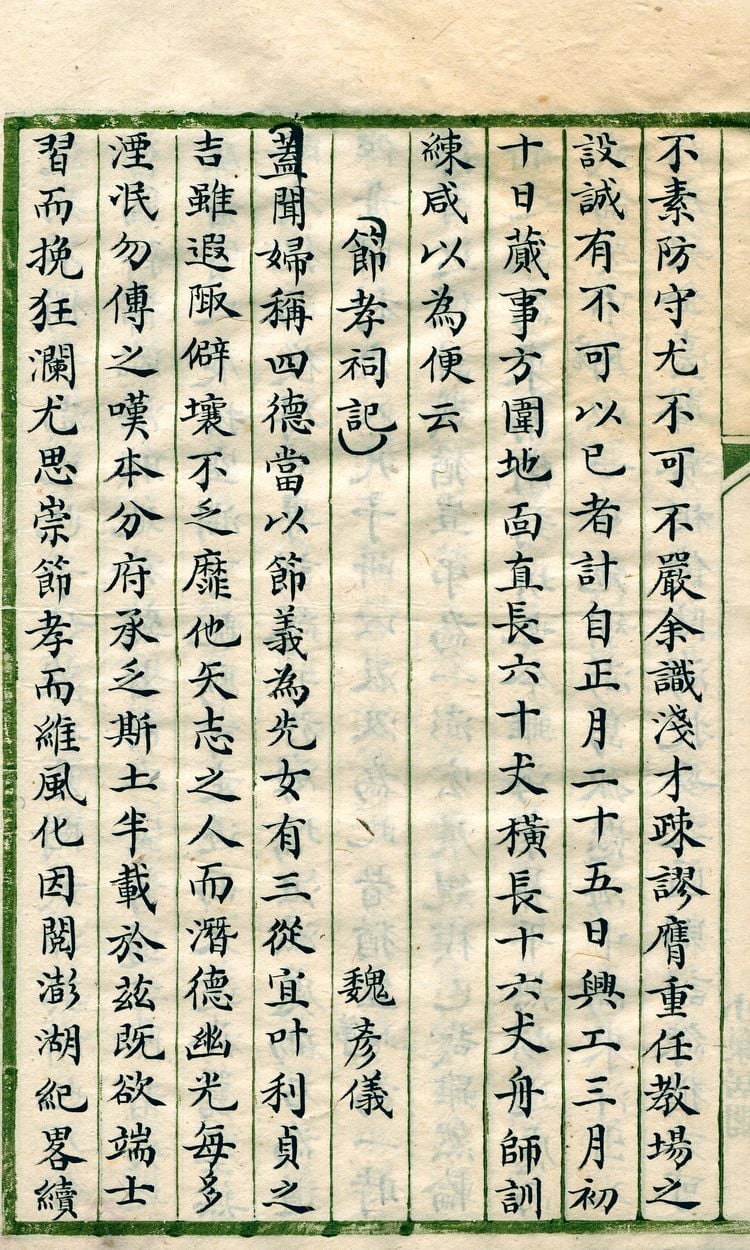 不素防守尤不可不嚴余識淺才疎謬膺重任教場之
設誠有不可以已者計自正月二十五日興工三月初
十日蕆事方圍地面直長六十丈橫長十六丈舟師訓
練咸以為便云
節孝祠記 魏彥儀
蓋聞婦稱四德當以節義為先女有三從宜叶利貞之
吉雖遐陬僻壤不乏靡他矢志之人而潛德幽光每多
湮泯勿傳之嘆本分府承乏斯土半載於茲既欲端士
習而挽狂瀾尤思崇節孝而維風化因閱澎湖紀畧續